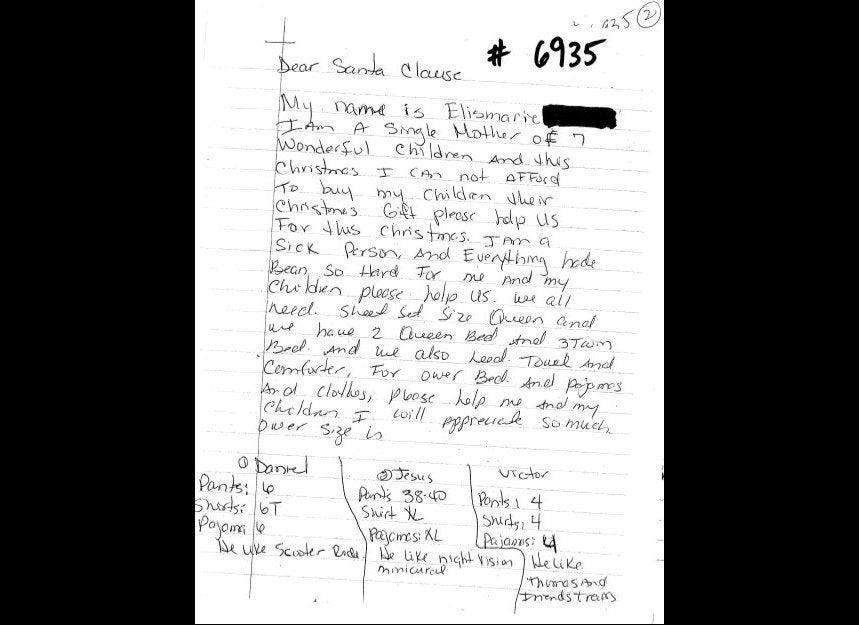 025 2
# 6935
Dear Santa Clause
My name is Elismarie
I Am A Single Mother of 7
Wonderful children And this
Christmas I can not AFFord
To buy my children their
Christmas Gift please help us
For this christmas. I Am a
Sick Person, And Everything hade
Bean so Hard For me And my
Children please help us. we all
need. Sheet Set Size Queen and
we have 2 Queen Bed And 3 Twin
Bed. And we also need. Towel And
Comforter, For ower Bed. And pajamas
And clothes, please help me And my
Children I will appreciate so much,
ower size is
① Daniel
Pants: 6
Shirts: 6T
Pajama 6
He like Scooter
② Jesus
Pants 38-40
Shirt XL
Pajamas: XL
He like night Vision
Victor
Pants: 4
Shirts: 4
Pajams: 4
He like
Thomas And
Friends trains